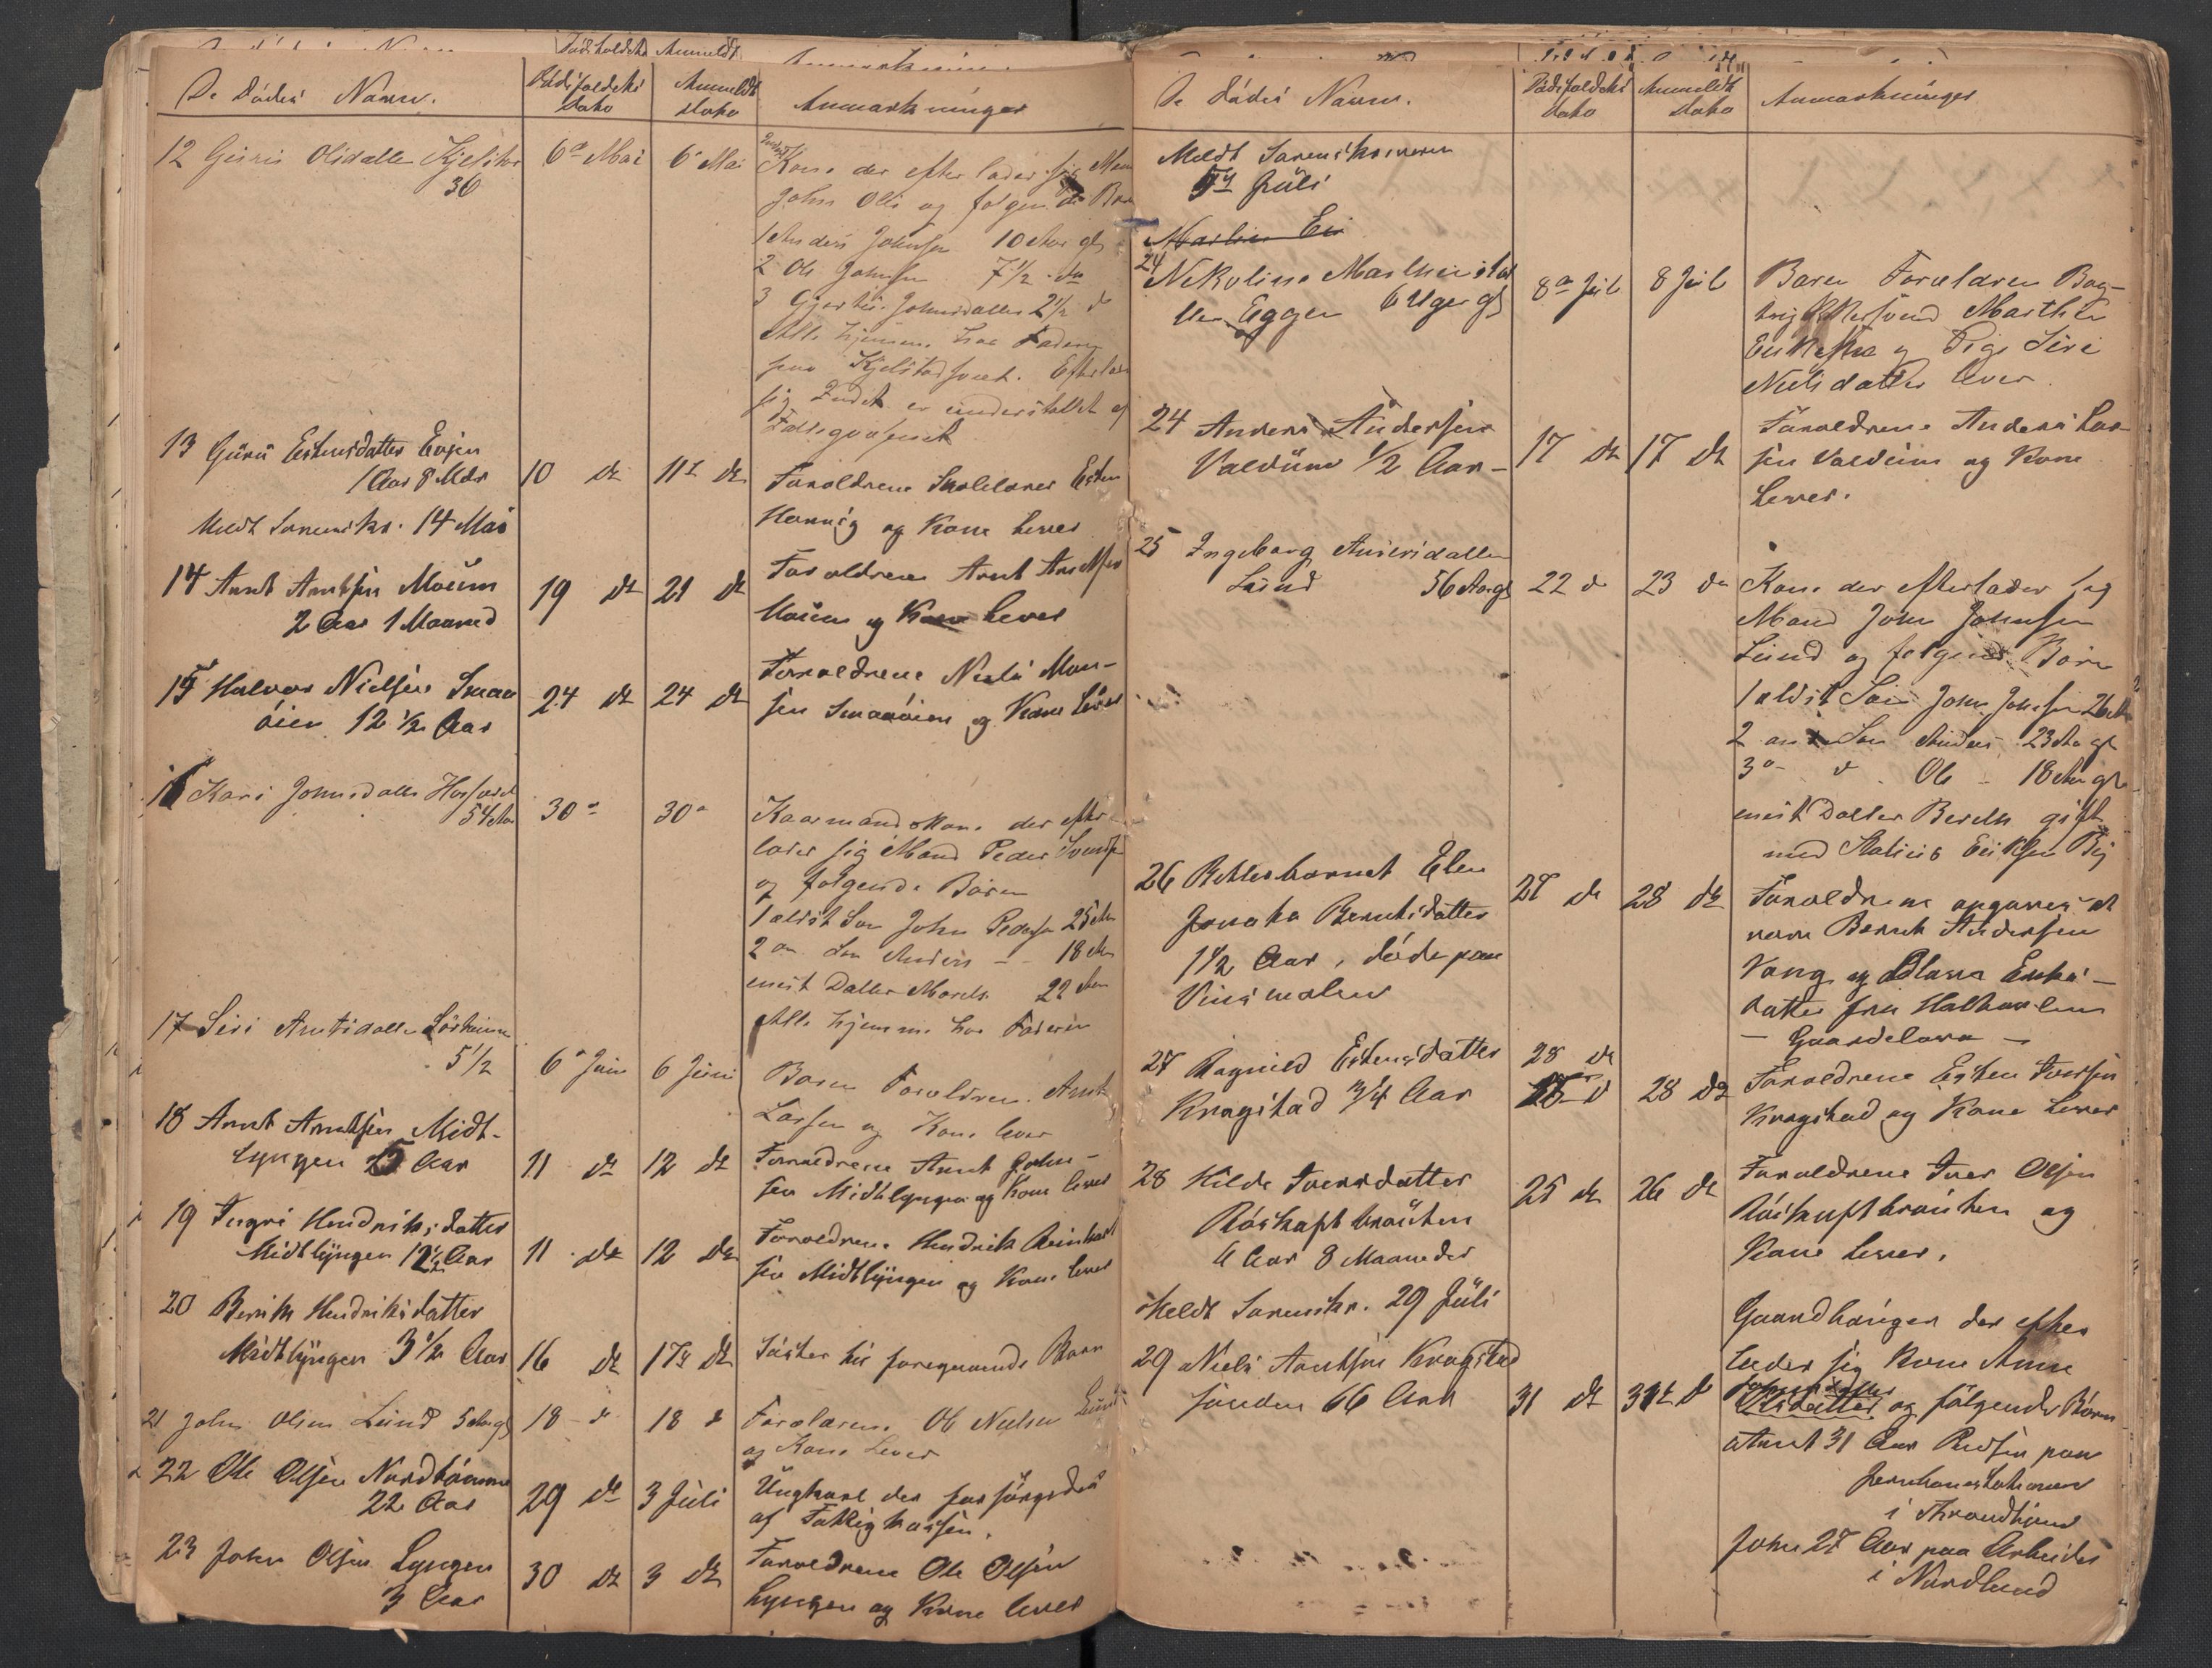 De Dødes Navne. Dødsfaldets Dato Anmeldt Dato Anmærkninger
12 Olsdatter
36
6te Mai 6te Mai
Kone der efterlader sig Mand
John Ols og følgende Børn
1 Anders Johnsen 10 Aar gl
2 Ole Johnsen 7½ do
3 Johnsdatter 2½ do
Alle hjemme hos Faderen
paa Efterlader
sig Intet er understøttet af
Fattigvæsenet
13 Guru Estensdatter
1 Aar 8 Mdr
10 do 11te do
Forældrene Skolelærer Esten
og Kone lever
Meldt Sorenskr. 14 Mai
14 Arnt Arntsen Moum
2 Aar 1 Maaned
19 do 21 do
Forældrene Arnt Arntsen
Moum og Kone lever
15 Halvor Nielsen Smaa
øien 12½ Aar
24 do 24 do
Forældrene Niels Mon-
sen Smaaøien og Kone lever
16 Kari Johnsdatter
54 Aar
30te 30te
Kaarmandskone der efter-
lader sig Mand Peder
og følgende Børn
1 ældst Søn John Pedersen 25 Aar
2 an Søn Anders - - 18 Aar
enest Datter Mareth 22 Aar
Alle hjemme hos Faderen
17 Siri Arntsdatter
5½
6te Juni 6 Juni
Barn Forældrene Arnt
Larsen og Kone lever
18 Arnt Arntsen Midt-
lyngen 5 Aar
11 do 12 do
Forældrene Arnt John-
sen Midtlyngen og Kone lever
19 Ingri Hendriksdatter
Midtlyngen 1½ Aar
11 do 12 do
Forældrene Hendrik Reinhart
sen Midtlyngen og Kone lever
20 Berith Hendriksdatter
Midtlyngen 3½ Aar
16 do 17de do
Søster til foregaaende Barn
21 John Olsen Lund 5 Aar gl
18 do 18 do
Forældrene Ole Nielsen Lund
og Kone Lever
22 Ole Olsen
22 Aar
29 do 3 Juli
Ungkarl der forsørgedes
af Fattigkassen.
23 John Olsen Lyngen
3 Aar
30 do 3 do
Forældrene Ole Olsen
Lyngen og Kone lever
De Dødes Navne. Dødsfaldets Dato Anmeldt Dato Anmærkninger
Meldt Sorenskriveren
Juli
24
Nikoline Marthinsdat
ter Eggen 6 Uger gl
8de Juli 8 Juli
Barn Forældrene
Marthin
og Pige Siri
Nielsdatter lever.
24 Anders Andersen
Valdum ½ Aar -
17 do 17 do
Forældrene Anders Lar-
sen Valdum og Kone
Lever.
25 Ingeborg Andersdatter
Lund 56 Aar gl
22 do 23 do
Kone der efterlader sig
Mand John Johnsen
Lund og følgende Børn
1 ældst Søn John Johnsen 26 Aar
2 an Søn Anders 23 Aar gl
3de do Ole - 18 Aar gl
enest Datter Bereth gift
med Eriksen
26 Betlerbarnet Elen
Jonetta Berntsdatter
1½ Aar, døde paa
27 do 28 do
Forældrene opgaves at
være Bernt Andersen
Vang og
datter fra
27 Ragnild Estensdatter
Kragstad ¾ Aar
28 do
28 do
Forældrene Esten Iversen
Kragstad og Kone lever
28 Hilda Iversdatter
4 Aar 8 Maaneder
25 do 26 do
Forældrene Iver Olsen
og
Kone lever.
Meldt Sorenskr. 29 Juli
29 Niels Arntsen Kragstad
66 Aar
31 do 31te do
Gaardbruger der efter
lader sig Kone Anne
Johnsdatter
Olsdatter og følgende Børn
Arnt 31 Aar paa
Jernbanestationen
i Trondhjem
John 27 Aar paa Arbeide
i Nordland